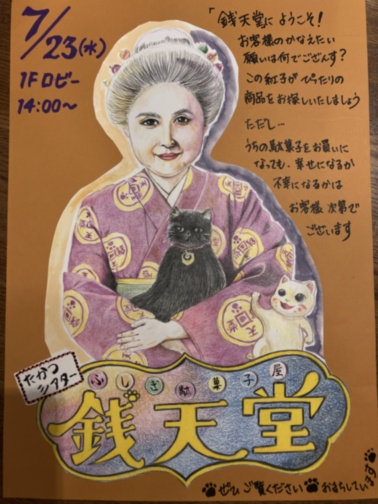 7/23(水)
1Fロビー
14:00〜
「銭天堂にようこそ!
お客様のかなえたい
願いは何でござんす?
この紅子がぴったりの
商品をお探しいたしましょう
ただし―
うちの駄菓子をお買いに
なっても、幸せになるか
不幸になるかは
お客様 次第で
ございます
たかつ
シアター
ふしぎ駄菓子屋
銭天堂
ぜひ ご覧ください
おまちしています